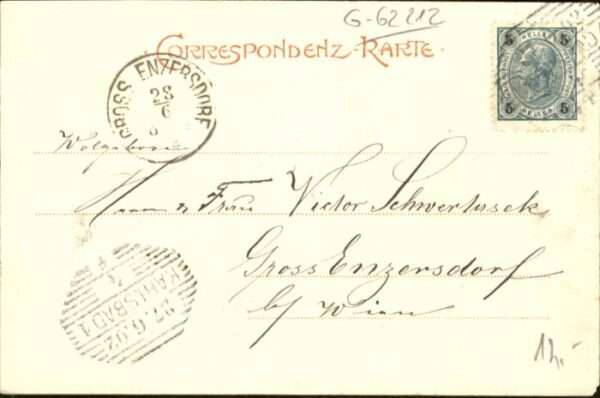 G-62212
CORRESPONDENZ-KARTE
5 HELLER 5
5 HELLER 5
GROSS ENZERSDORF
28
6
Herrn & Frau Victor Schwertasek
Gross Enzersdorf
bei Wien
KARLSBAD 1
27.6.02
12.-